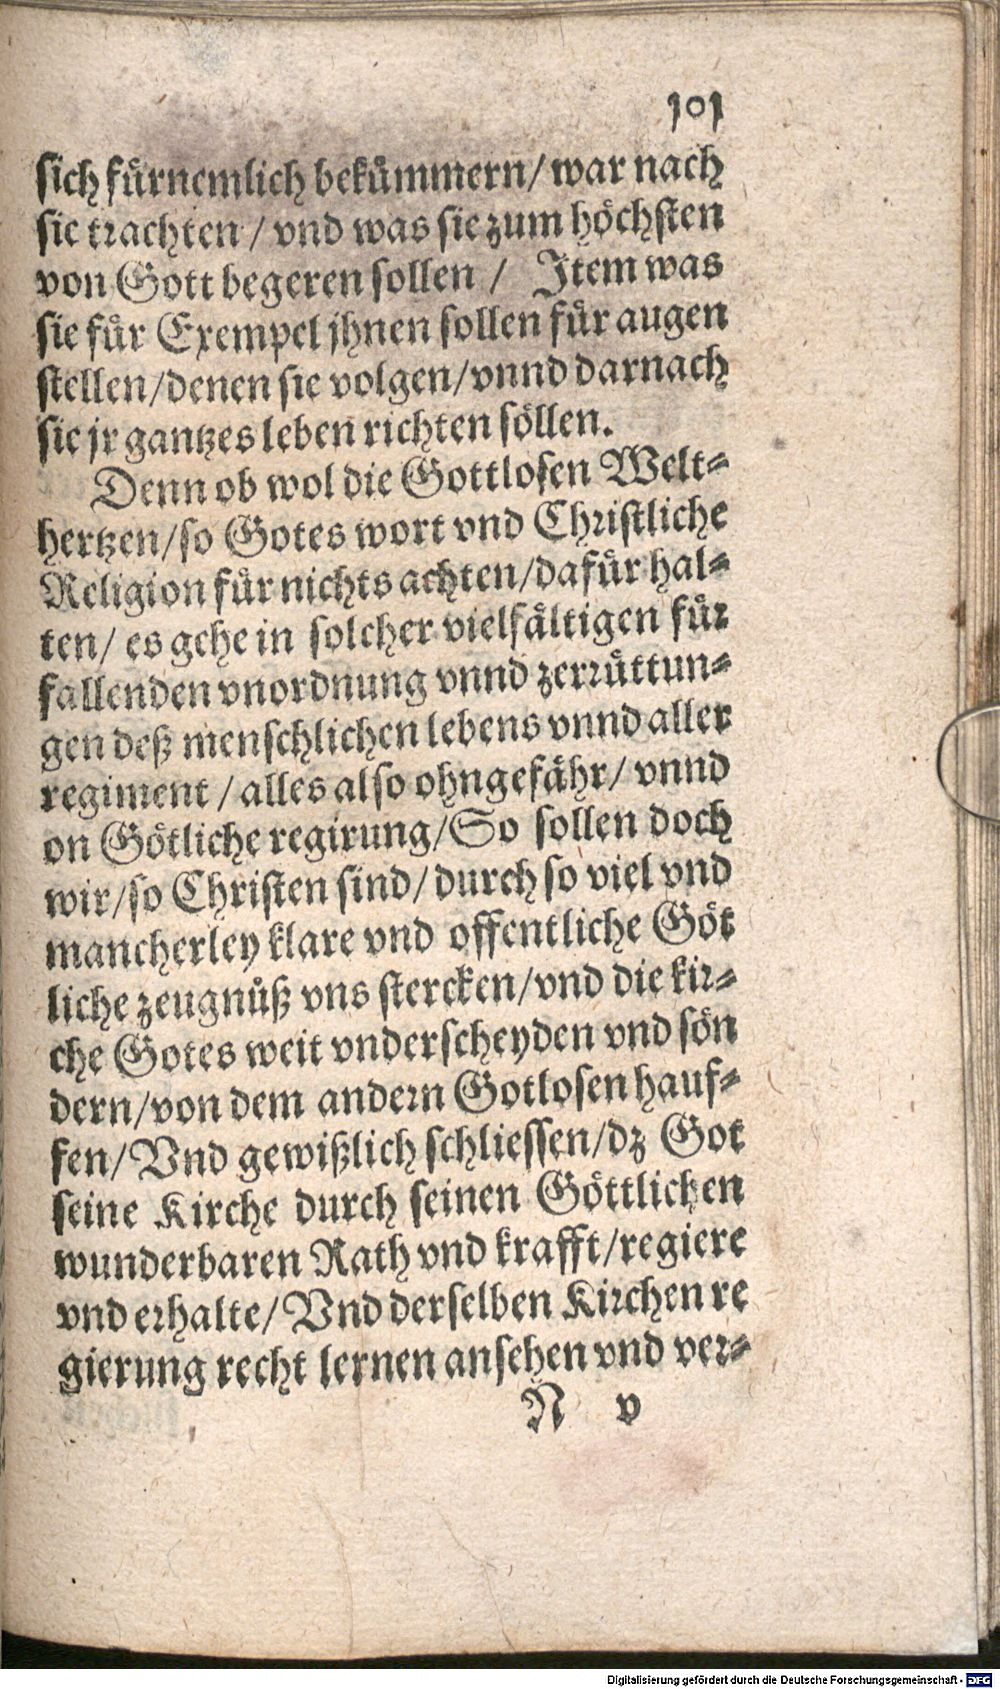 101
sich fürnemlich bekümmern/ war nach
sie trachten / vnd was sie zum höchsten
von Gott begeren sollen / Item was
sie für Exempel jhnen sollen für augen
stellen/denen sie volgen/vnnd darnach
sie jr gantzes leben richten söllen.
Denn ob wol die Gottlosen Welt-
hertzen/so Gotes wort vnd Christliche
Religion für nichts achten/dafür hal-
ten/ es gehe in solcher vielfältigen für
fallenden vnordnung vnnd zerrüttun-
gen deß menschlichen lebens vnnd aller
regiment / alles also ohngefähr/ vnnd
on Götliche regirung/So sollen doch
wir/so Christen sind/durch so viel vnd
mancherley klare vnd offentliche Göt
liche zeugnüß vns stercken/vnd die kir-
che Gotes weit vnderscheyden vnd sön
dern/von dem andern Gotlosen hauf-
fen/Vnd gewißlich schliessen/dz Got
seine Kirche durch seinen Göttlichen
wunderbaren Rath vnd krafft/regiere
vnd erhalte/Vnd derselben Kirchen re
gierung recht lernen ansehen vnd ver-
N v
Digitalisierung gefördert durch die Deutsche Forschungsgemeinschaft - DFG